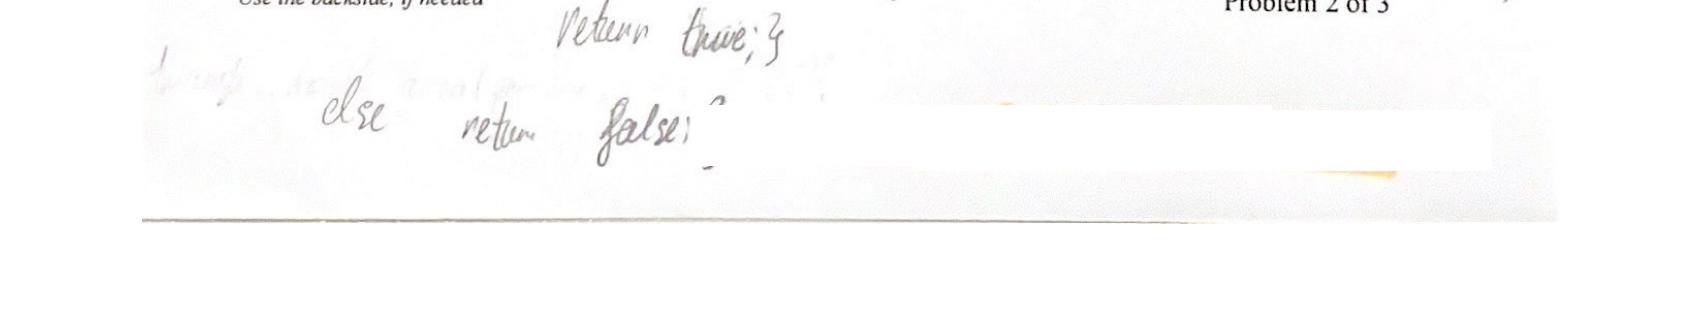 Use the backside, if needed
Problem 2 of 3
return true;}
else return false;